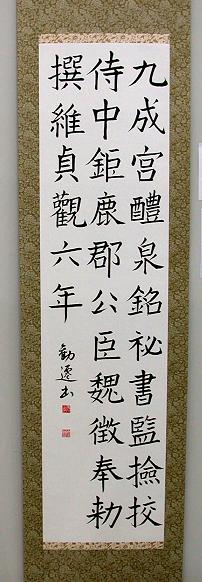 九成宮醴泉銘祕書監撿挍
侍中鉅鹿郡公臣魏徵奉勅
撰維貞觀六年